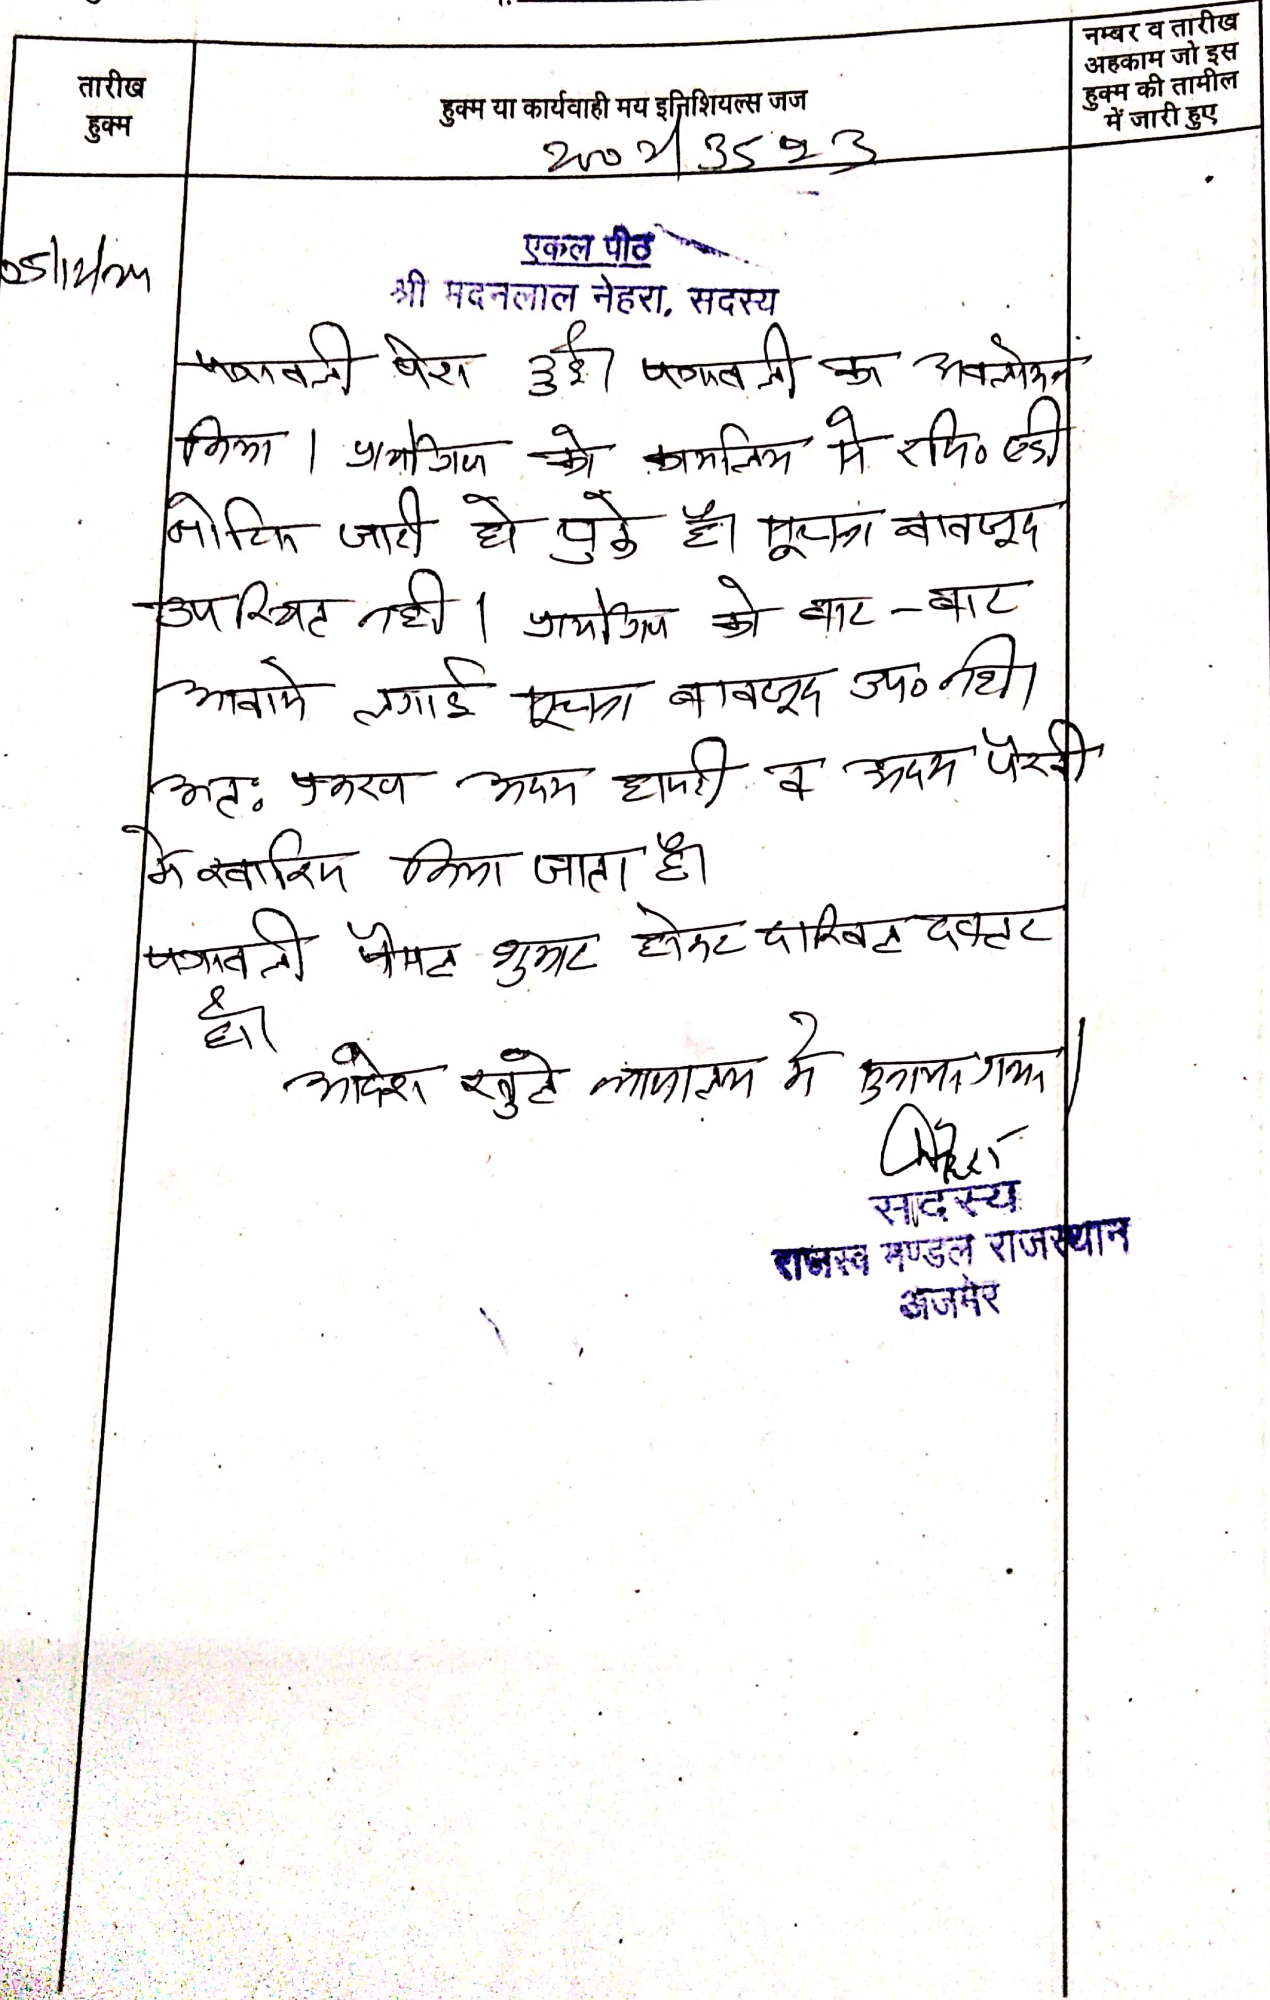 तारीख
हुक्म
हुक्म या कार्यवाही मय इनिशियल्स जज
नम्बर व तारीख
अहकाम जो इस
हुक्म की तामील
में जारी हुए
एकल पीठ
श्री मदनलाल नेहरा, सदस्य
पत्रावली पेश हुई। पत्रावली का अवलोकन
किया। प्रार्थीगण को कार्यालय से रजि० एडी
नोटिस जारी हो चुके है। सूचना बावजूद
उपस्थित नही। प्रार्थीगण को बार-बार
आवाजे लगाई सूचना बावजूद उप० नही।
अतः प्रकरण अदम हाजरी व अदम पैरवी
मे खारिज किया जाता है।
पत्रावली फैसल शुमार होकर दाखिल दफ्तर
हो।
आदेश खुले न्यायालय मे सुनाया गया।
सदस्य
राजस्व मण्डल राजस्थान
अजमेर